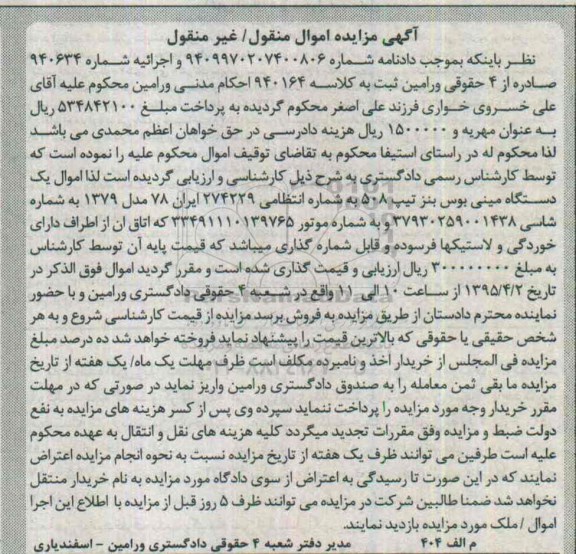 آگهی مزایده اموال منقول/ غیر منقول
نظر باینکه بموجب دادنامه شماره ۹۴۰۹۹۷۰۲۰۷۴۰۰۸۰۶ و اجرائیه شماره ۹۴۰۶۳۴
صادره از ۴ حقوقی ورامین ثبت به کلاسه ۹۴۰۱۶۴ احکام مدنی ورامین محکوم علیه آقای
علی خسروی خواری فرزند علی اصغر محکوم گردیده به پرداخت مبلغ ۵۳۴۸۴۲۱۰۰ ریال
به عنوان مهریه و ۱۵۰۰۰۰۰ ریال هزینه دادرسی در حق خواهان اعظم محمدی می باشد
لذا محکوم له در راستای استیفا محکوم به تقاضای توقیف اموال محکوم علیه را نموده است که
توسط کارشناس رسمی دادگستری به شرح ذیل کارشناسی و ارزیابی گردیده است لذا اموال یک
دستگاه مینی بوس بنز تیپ ۵۰۸ به شماره انتظامی ۲۷۴۲۲۹ ایران ۷۸ مدل ۱۳۷۹ به شماره
شاسی ۳۷۹۳۰۲۵۹۰۰۱۴۳۸ و به شماره موتور ۳۳۴۹۱۱۱۰۱۳۹۷۶۵ که اتاق ان از اطراف دارای
خوردگی و لاستیکها فرسوده و قابل شماره گذاری میباشد که قیمت پایه آن توسط کارشناس
به مبلغ ۳۰۰۰۰۰۰۰۰ ریال ارزیابی و قیمت گذاری شده است و مقرر گردید اموال فوق الذکر در
تاریخ ۱۳۹۵/۴/۲ از ساعت ۱۰ الی ۱۱ واقع در شعبه ۴ حقوقی دادگستری ورامین و با حضور
نماینده محترم دادستان از طریق مزایده به فروش برسد مزایده از قیمت کارشناسی شروع و به هر
شخص حقیقی یا حقوقی که بالاترین قیمت را پیشنهاد نماید فروخته خواهد شد ده درصد مبلغ
مزایده فی المجلس از خریدار اخذ و نامبرده مکلف است ظرف مهلت یک ماه/ یک هفته از تاریخ
مزایده ما بقی ثمن معامله را به صندوق دادگستری ورامین واریز نماید در صورتی که در مهلت
مقرر خریدار وجه مورد مزایده را پرداخت ننماید سپرده وی پس از کسر هزینه های مزایده به نفع
دولت ضبط و مزایده وفق مقررات تجدید میگردد کلیه هزینه های نقل و انتقال به عهده محکوم
علیه است طرفین می توانند ظرف یک هفته از تاریخ مزایده نسبت به نحوه انجام مزایده اعتراض
نمایند که در این صورت تا رسیدگی به اعتراض از سوی دادگاه مورد مزایده به نام خریدار منتقل
نخواهد شد ضمنا طالبین شرکت در مزایده می توانند ظرف ۵ روز قبل از مزایده با اطلاع این اجرا
اموال / ملک مورد مزایده بازدید نمایند.
م الف ۴۰۴ مدیر دفتر شعبه ۴ حقوقی دادگستری ورامین - اسفندیاری